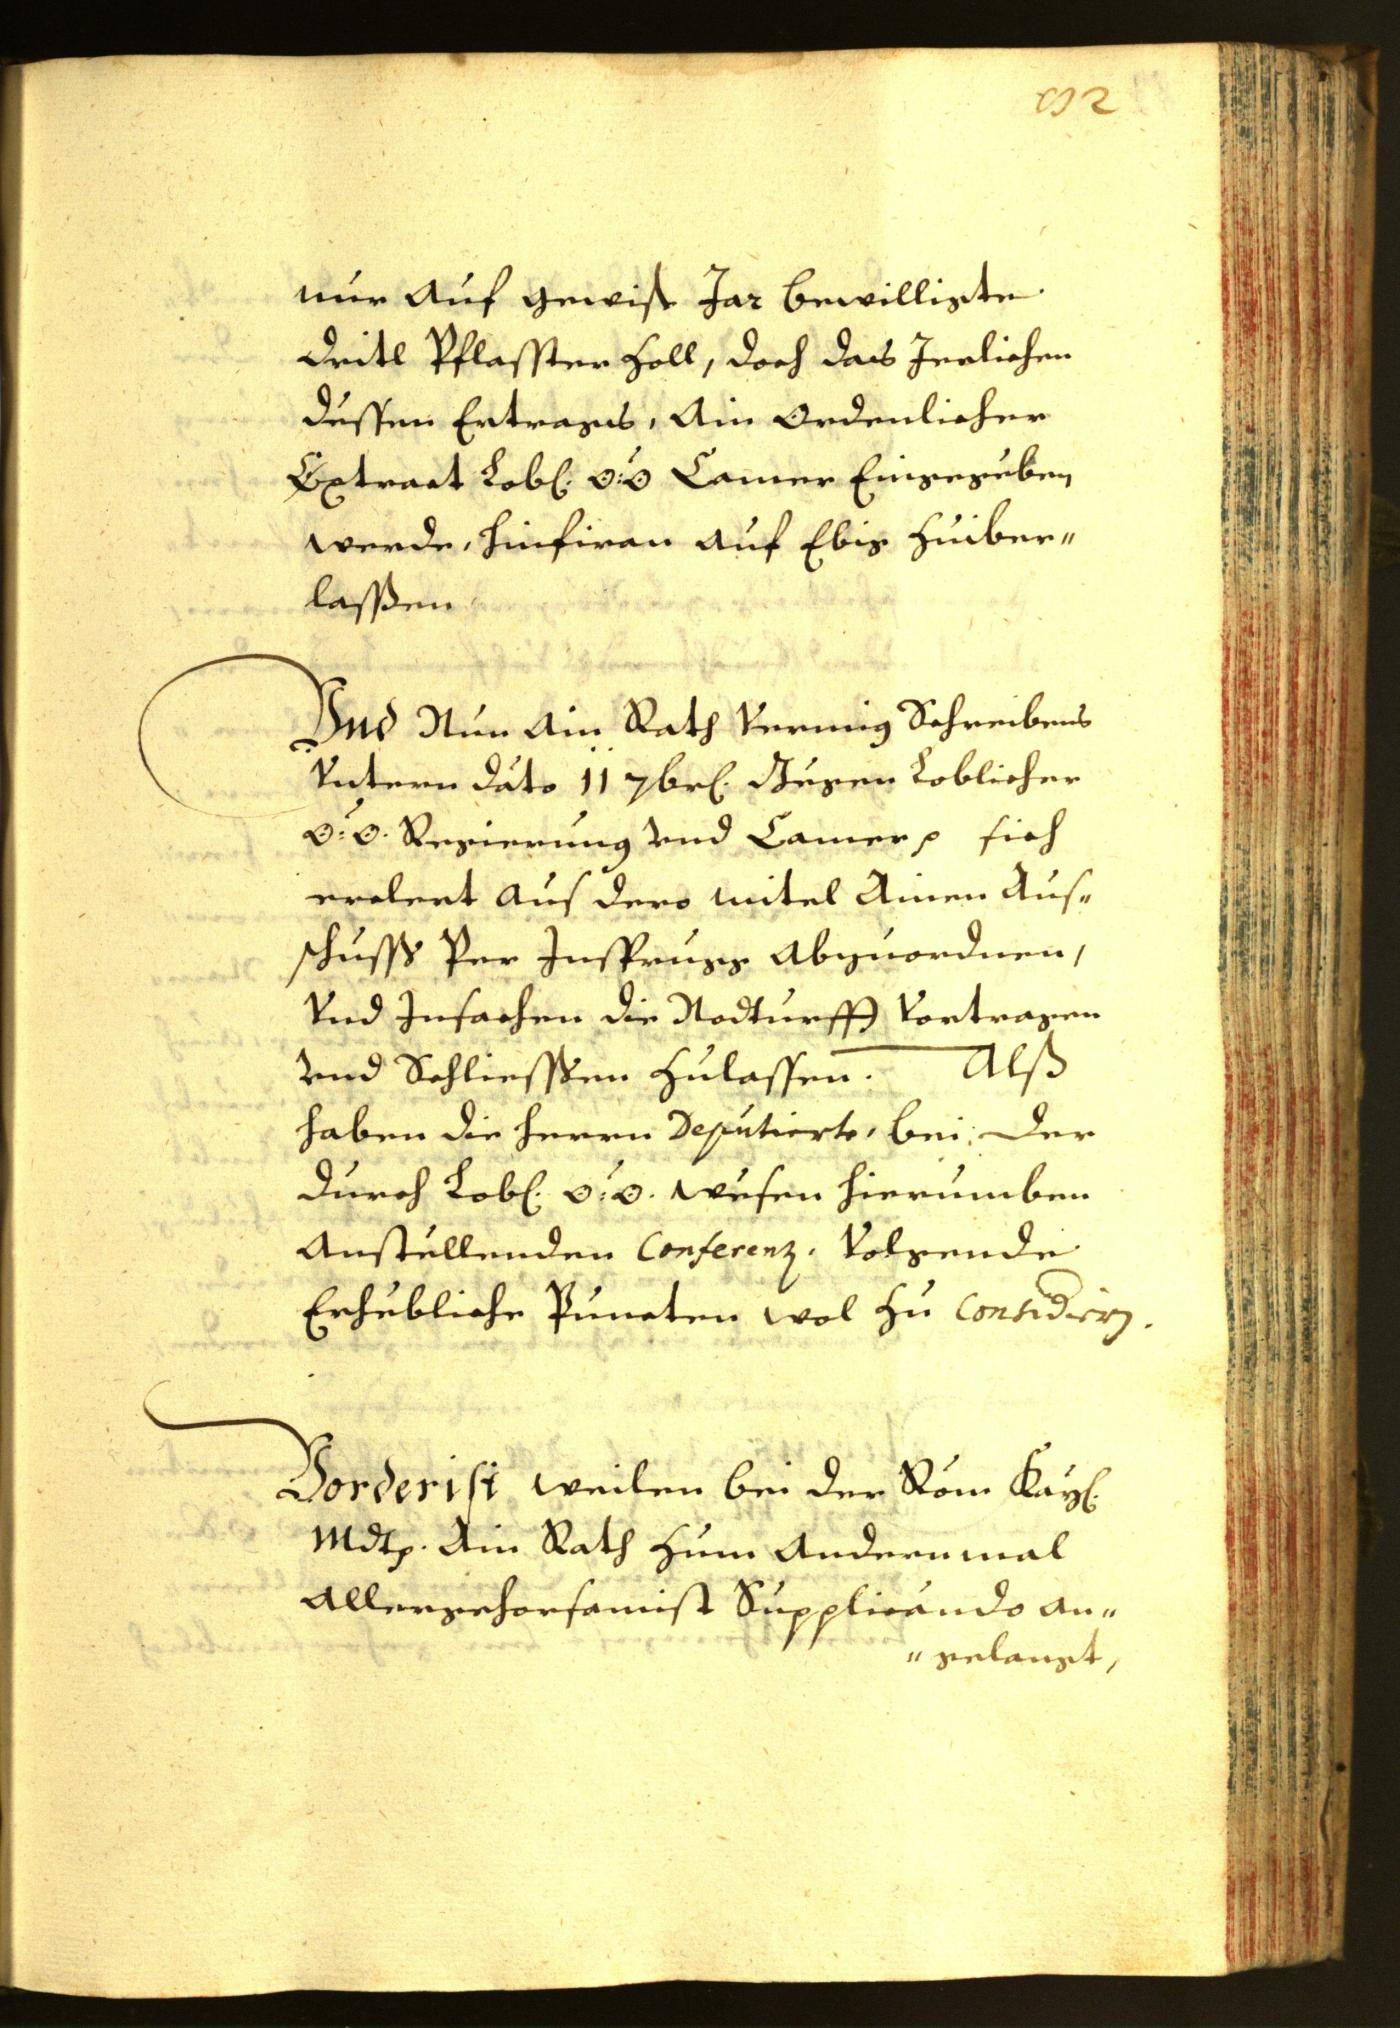 nur auf gewiß Jar bewilligte
dritl Pflasster Zoll, doch das Jerlichen
dessen Ertrags, Ain Ordenlicher
Extract Lobl: O:Ö Camer Eingegeben
werde, hinfiran auf Ebig Zuiber„
lassßen
Vnd Nun Ain Rath vermüg Schreibens
Vntern dato 11 7brl: Gegen Loblicher
O:Ö. Regierung vnd Camer sich
erclert aus dero mitel Ainen Aus„
schusss Per Insprugg Abzuordnen,
Vnd Insachen die Nodturfft Vortragen
vnd Schliesssen Zulassen. Alß
haben die herrn Deputierte, bei der
durch Lobl: O:Ö. wesen hierumben
Anstellenden Conferenz, Volgende
Erhebliche Puncten wol Zu Considiern.
Vorderist weilen bei der Röm Kayl:
Mdt. Ain Rath Zum Andernmal
Allergehorsamist Supplicando an„
„gelangt,